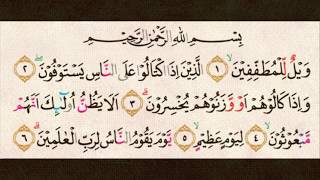 بِسْمِ اللهِ الرَّحْمٰنِ الرَّحِيْمِ
وَيْلٌ لِّلْمُطَفِّفِيْنَۙ ١ الَّذِيْنَ اِذَا اكْتَالُوْا عَلَى النَّاسِ يَسْتَوْفُوْنَۖ ٢
وَاِذَا كَالُوْهُمْ اَوْ وَّزَنُوْهُمْ يُخْسِرُوْنَۗ ٣ اَلَا يَظُنُّ اُولٰۤىِٕكَ اَنَّهُمْ
مَّبْعُوْثُوْنَۙ ٤ لِيَوْمٍ عَظِيْمٍۙ ٥ يَّوْمَ يَقُوْمُ النَّاسُ لِرَبِّ الْعٰلَمِيْنَۗ ٦